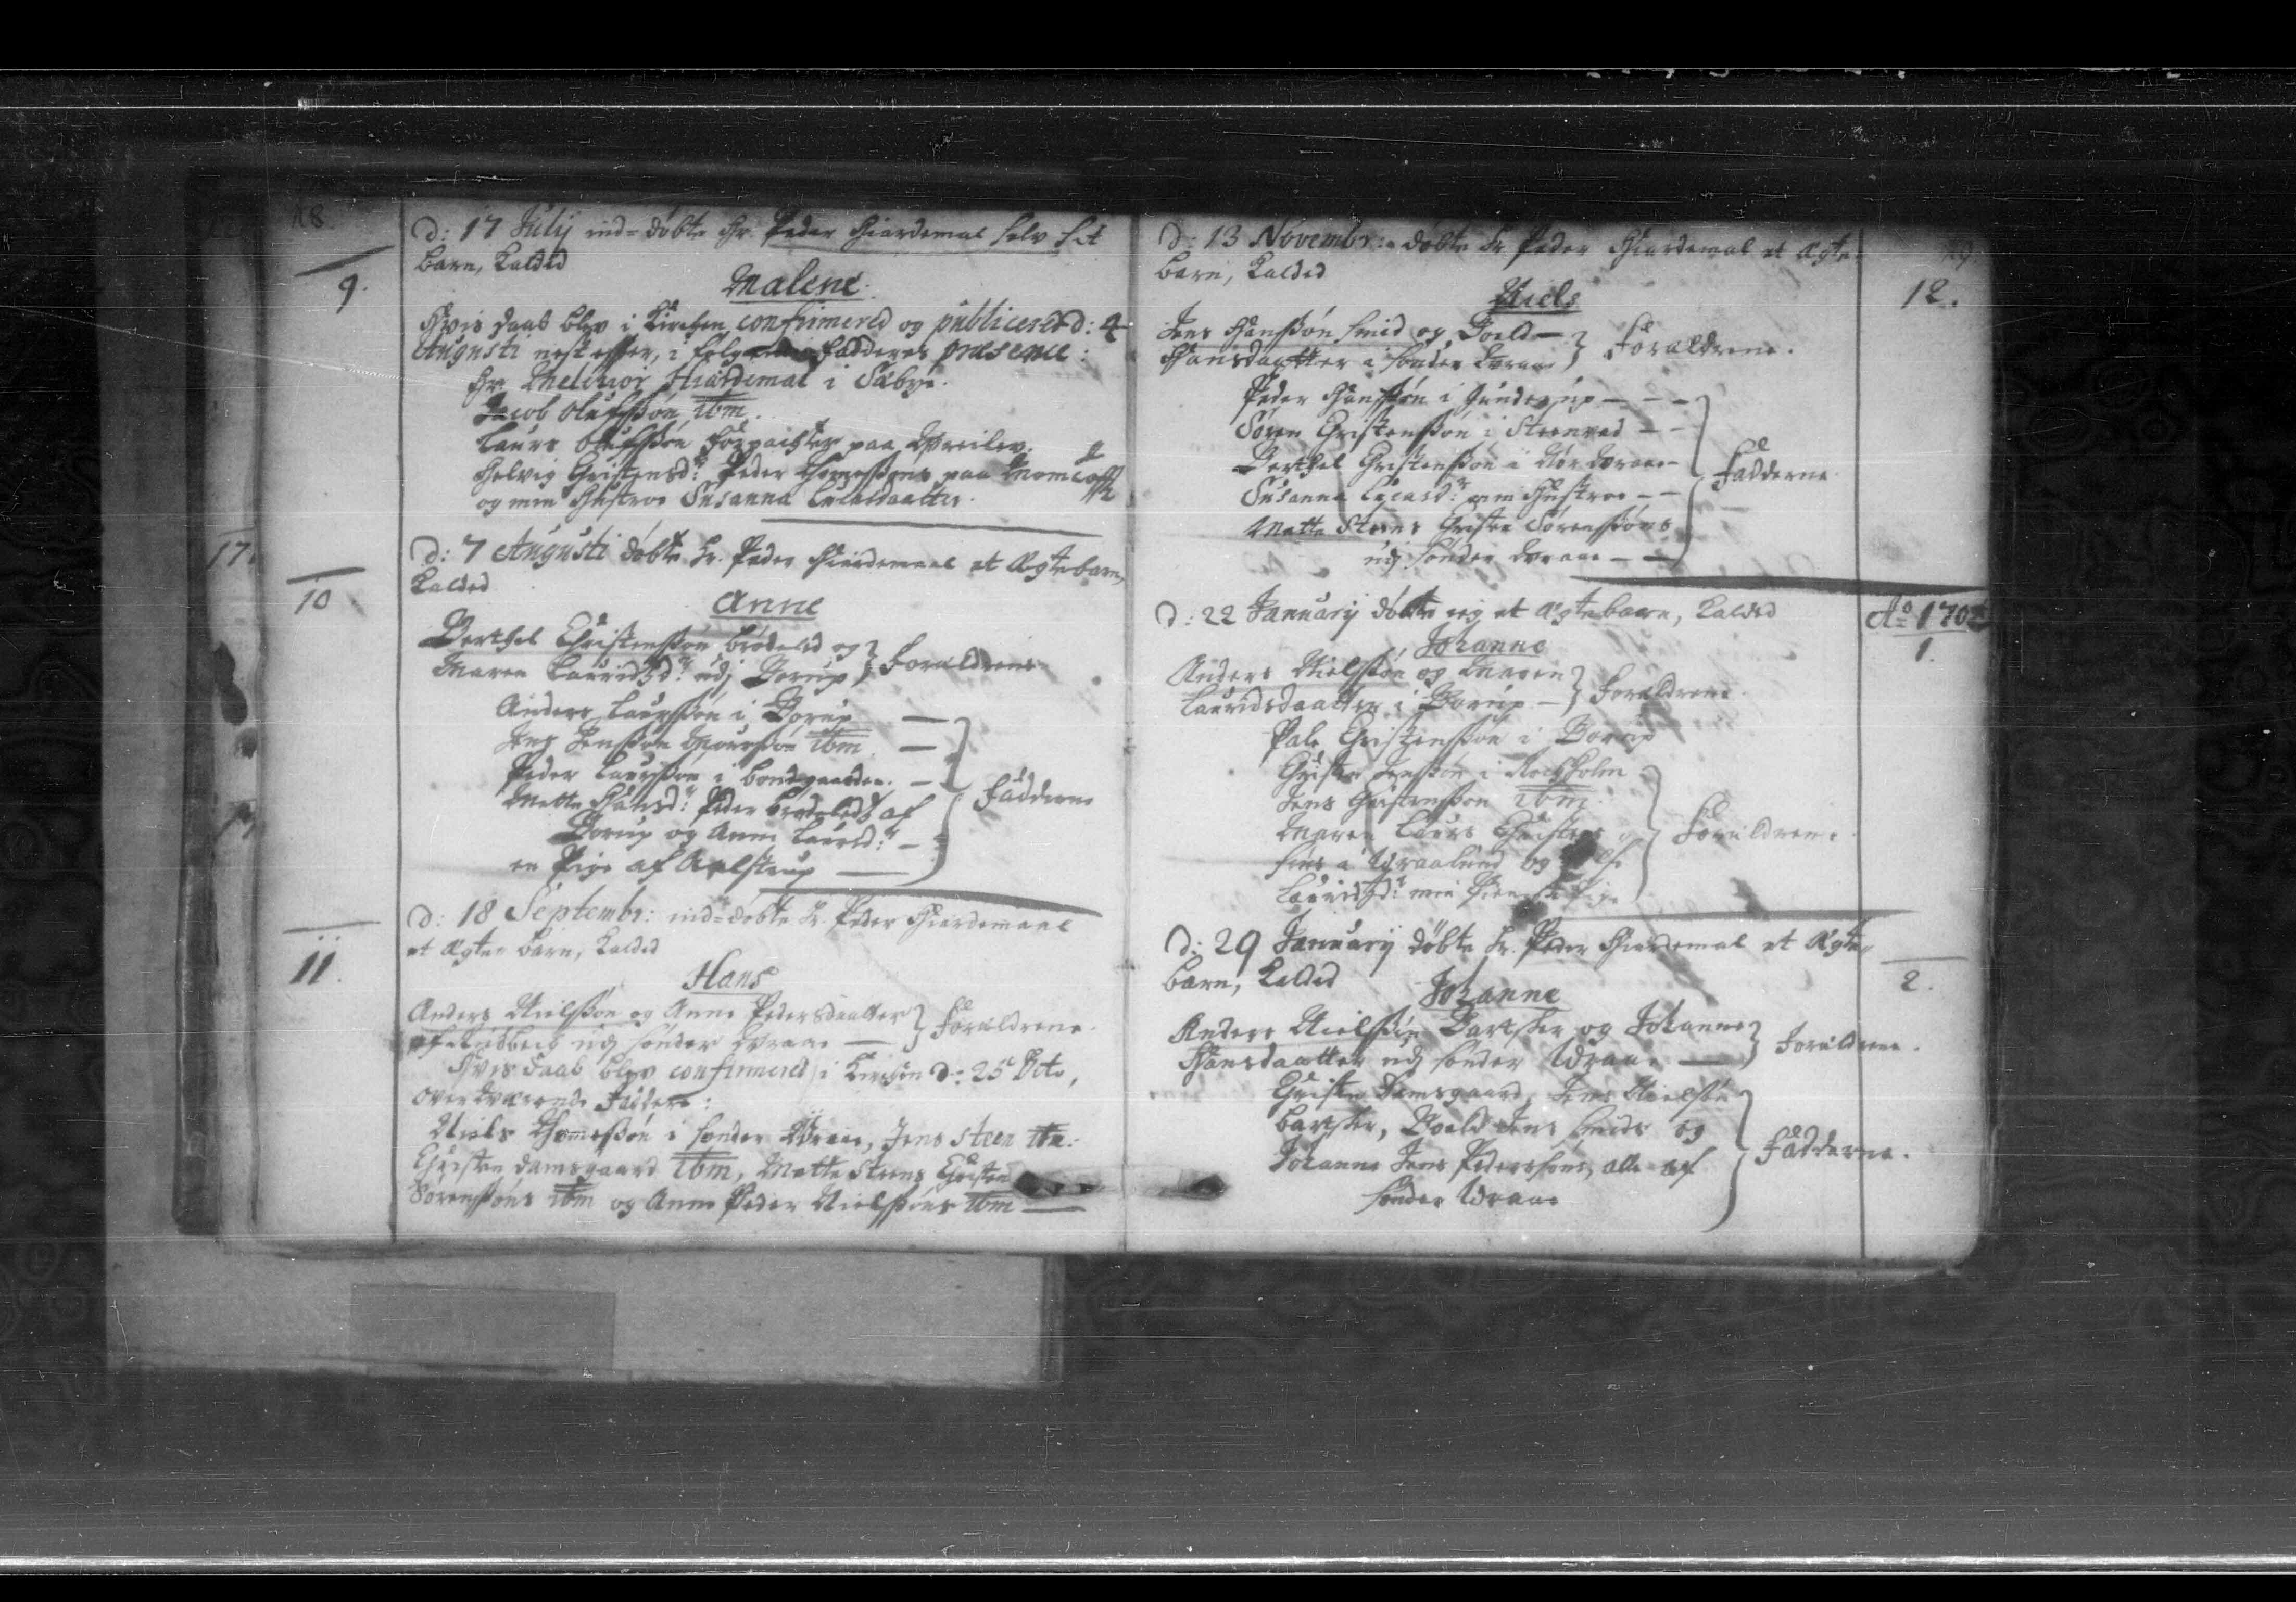 18.
D: 17 Julij ind-døbte Hr. Peder Hiardemal selv sit
barn, kalded
9.
Malene.
Hvis daab blev i Kirchen confirmered og publicered d: 4
Augusti nest efter, i følgende Fadderes præsence:
Hr. Melchior Hiardemal i Sæbye.
Jacob Olufssøn ibm.
Laurs Olufssøn Forpachter paa
Helvig Christensd: Peder Thomessøns paa
og min Hustroe Susanna Lucasdaatter.
17.
D: 7 Augusti døbte Hr. Peder Hiardemaal et Ægtebarn,
kalded
10
Anne
Berthel Christenssøn brødeled og
Maren Lauridsd: udj Borup
Forældrene
Anders Laurssøn i Borup
Jens Jenssøn ibm
Peder Laurssøn i bondgaarden.
Mette Hansd: Peder brødeleds af
Borup og Anne Laursd:
en Pige af Aalstrup
Fadderne
D: 18 Septembr: ind-døbte Hr. Peder Hiardemaal
et Ægte barn, kalded
11.
Hans
Anders Nielssøn og Anne Pedersdaatter
af udj sønder Wraae
Forældrene.
Hvis daab blev confirmered i Kirchen d: 25 Dito,
overværende Faddere:
Niels Thomessøn i sønder Wraae, Jens Steen ibm.
Christen damsgaard ibm, Mette Steens Christen
Sørenssøns ibm og Anne Peder Nielssøns ibm
19.
D: 13 Novembr: døbte Hr. Peder Hiardemal et Ægte
barn, kalded
12.
Niels
Jens Hanssøn smid og Voeld
Hansdaatter i sønder Wraae
Forældrene.
Peder Hanssøn i Junderup
Søren Christenssøn i Steenrad
Berthel Christenssøn i Nør Wraae
Susanna Lucasd: min Hustroe
Mette Steens Christen Sørenssøns
udj sønder Wraae
Fadderne
D: 22 Januarij døbte jeg et Ægtebarn, kalded
Ao 1702
1.
Johanne
Anders Nielssøn og Maren
Lauridsdaatter i Borup
Forældrene.
Pale Christenssøn i Borup
Christen Jenssøn i Rockholm
Jens Christenssøn ibm.
Maren Laurs
i Wraalund og
Lauridsd: min Pige
Forældrene.
D: 29 Januarij døbte Hr. Peder Hiardemal et Ægte
barn, kalded
2.
Johanne
Anders Nielssøn Bartsker og Johanne
Hansdaatter udj sønder Wraae
Forældrene.
Christen Damsgaard, Jens Nielssøn
bartsker, Voeld Jens smids og
Johanne Jens Pederssøns, alle af
sønder Wraae
Fadderne.